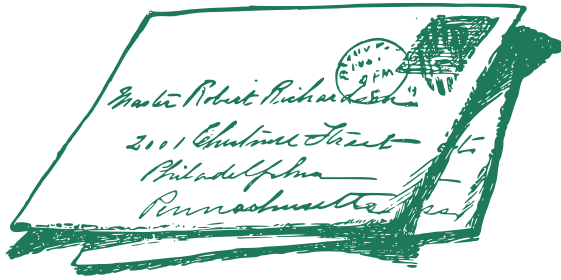 9 PM
Master Robert Richardson
2001 Chestnut Street
Philadelphia
Pennachusetts